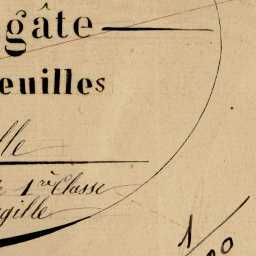 gâte
euilles
lle
e 1re Classe
gille
1/00